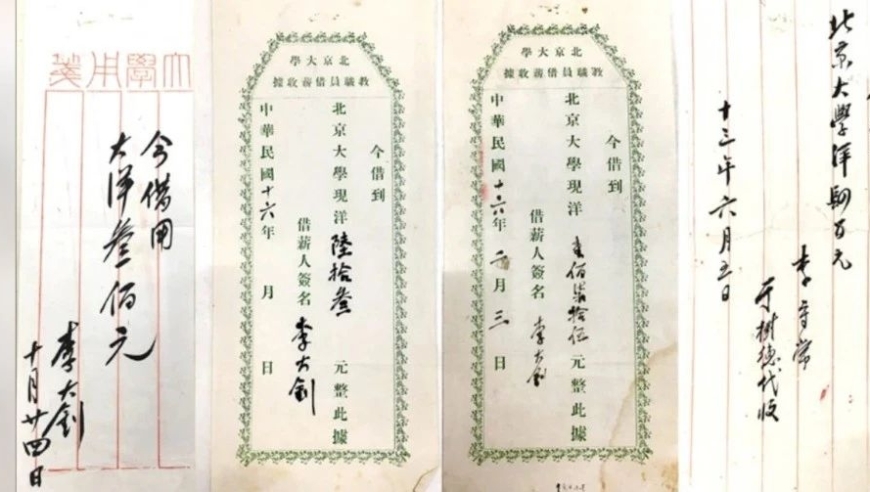 大學用箋
今借用
大洋叁佰元
李大釗
十月廿四日
北京大學
教職員借薪收據
今借到
北京大學現洋陸拾叁元整此據
借薪人簽名 李大釗
中華民國十六年 月 日
北京大學
教職員借薪收據
今借到
北京大學現洋壹佰柒拾伍元整此據
借薪人簽名 李大釗
中華民國十六年 月三日
北京大學洋 百元
李守常
于樹德代收
十三年六月五日